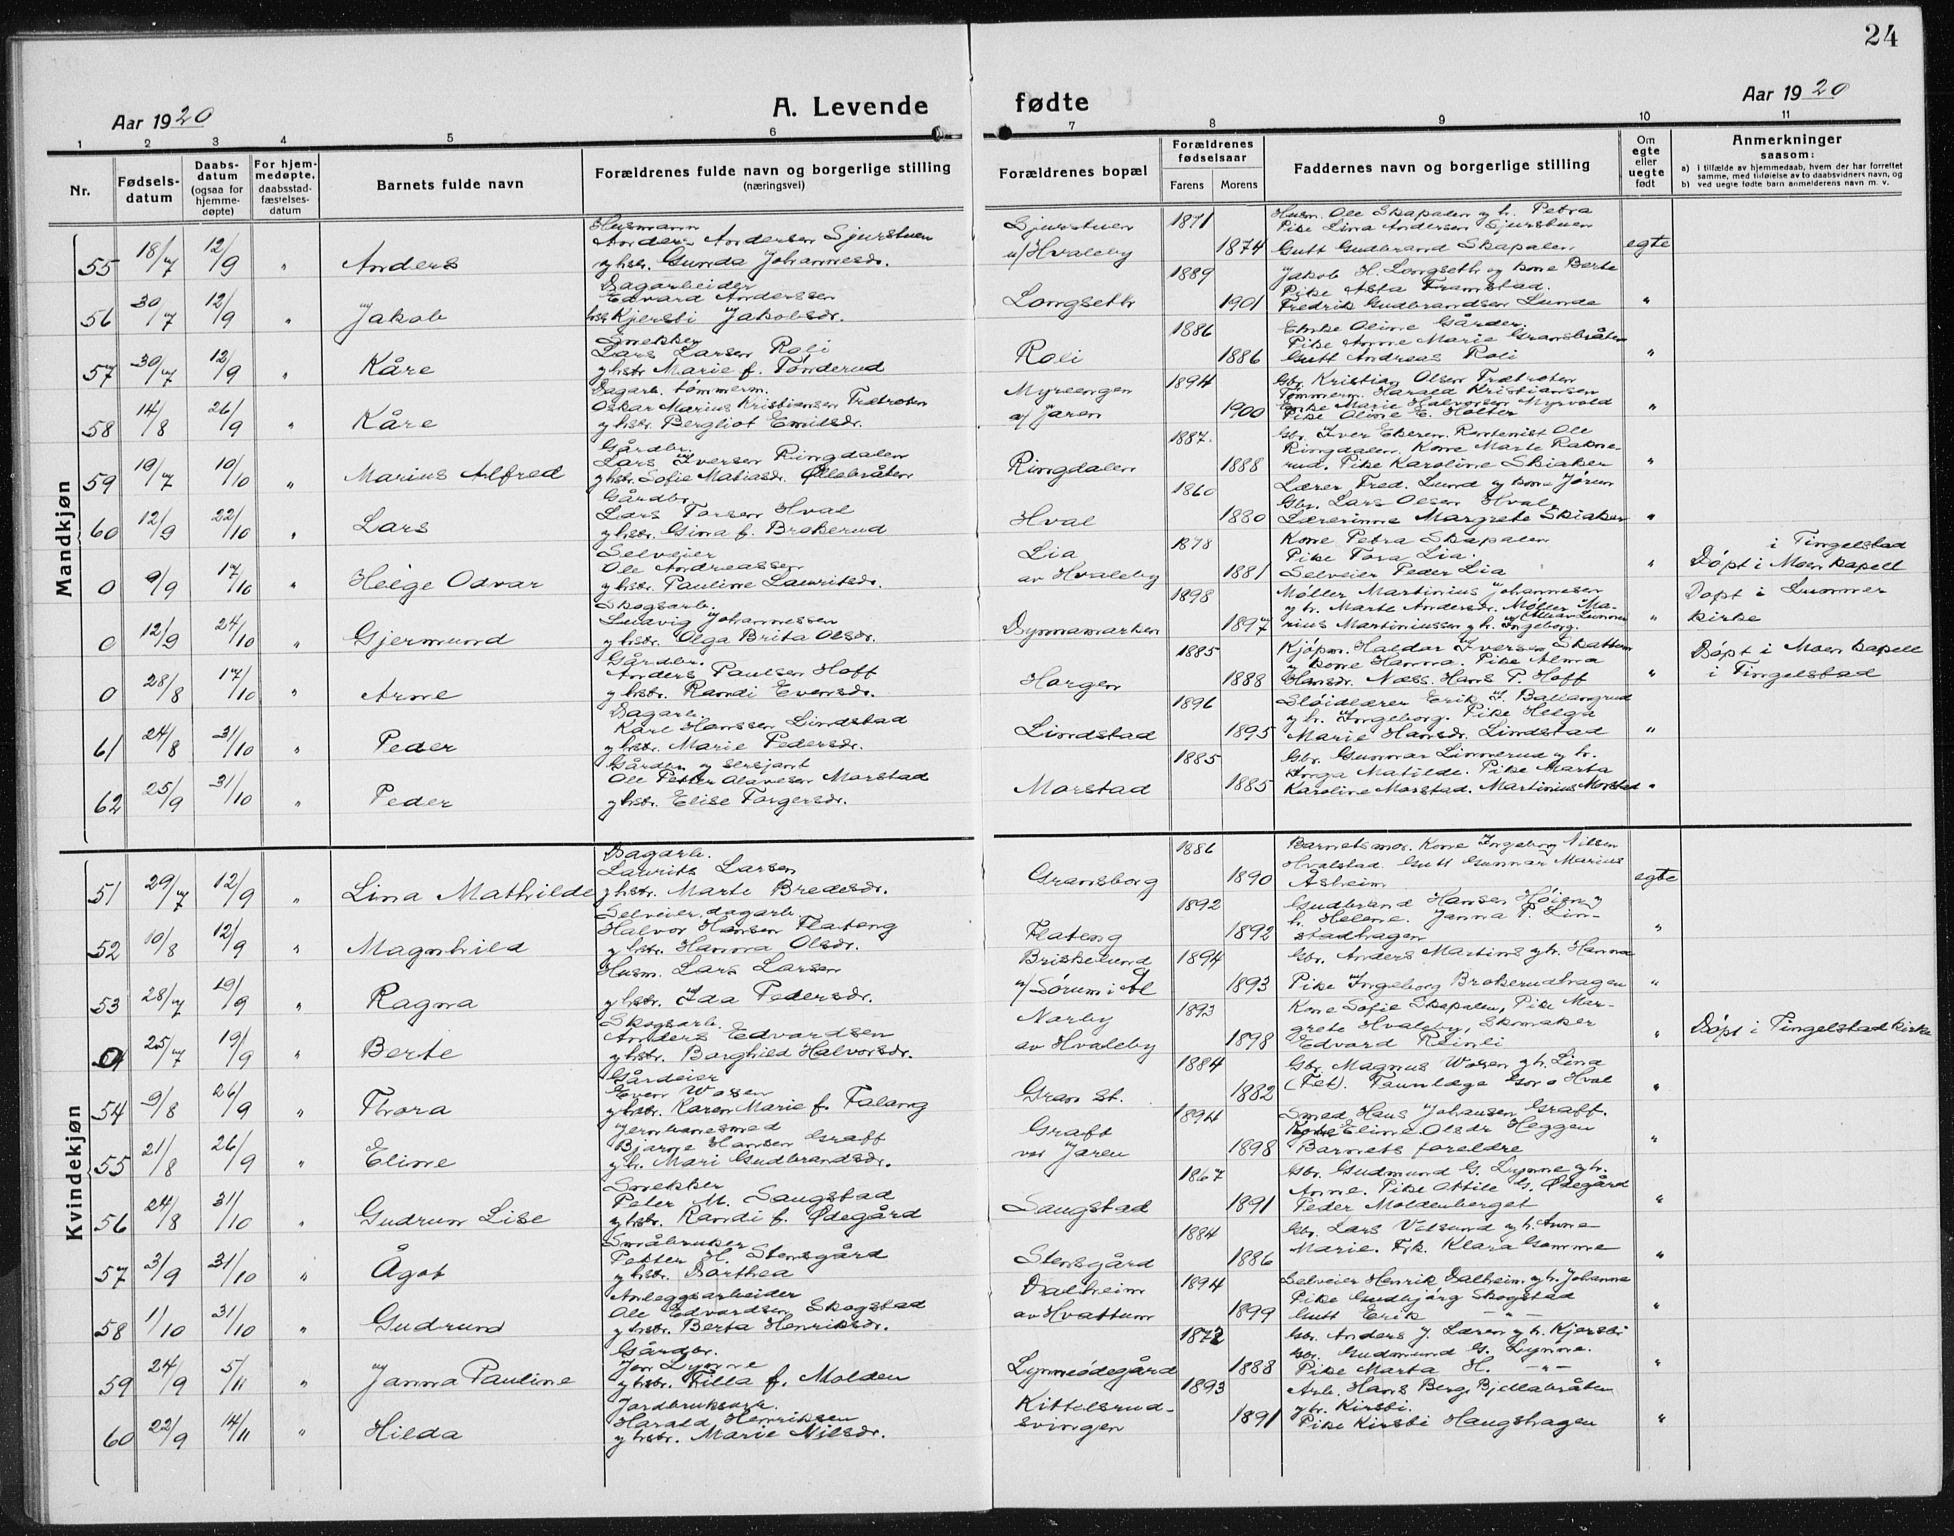 24
Aar 1920 A. Levende fødte Aar 1920
1 2 3 4 5 6 7 8 9 10 11
Nr.
Fødselsdatum
Daabsdatum (ogsaa for hjemmedøpte)
For hjemmedøpte, daabsstadfæstelsesdatum
Barnets fulde navn
Forældrenes fulde navn og borgerlige stilling (næringsvei)
Forældrenes bopæl
Forældrenes fødselsaar
Farens Morens
Faddernes navn og borgerlige stilling
Om egte eller uegte født
Anmerkninger saasom:
a) i tilfælde av hjemmedaab, hvem der har forrettet samme, med tilføielse av to daabsvidners navn, og
b) ved uegte fødte barn anmelderens navn m. v.
Mandkjøn
Husmann
55 18/7 12/9 " Anders Anders Andersen Sjurstuen
y hstr. Gunda Johannesdr.
Sjurstuen u/Hvaleby 1871 1874
Husm. Ole Skapalen y h. Petra
Pike Lina Andersen Sjurstuen
Gutt Gudbrand Skapalen egte
Dagarbeider
56 30/7 12/9 " Jakob Edvard Anderssen
hstr Kjersti Jakobsdr.
Longseth 1889 1901
Jakob H. Longseth og kone Berte
Pike Asta Framstad.
Fredrik Gudbrandsen Lunde "
Snekker
57 30/7 12/9 " Kåre Lars Larsen Roli
y hstr Marie f. Tønderud
Roli 1886 1886
Enke Oline Gårder.
Pike Anne Marie Gransbråten
Gutt Andreas Roli "
Dagarb. tømmerm.
58 14/8 26/9 " Kåre Oskar Marius Kristiansen Trætroten
y hstr. Bergliot Emilsdr.
Myrengen a/ Jaren 1894 1900
Gbr. Kristian Olsen Trætroten
Tømmerm. Harald Kristiansen
Enke Marie Halvorsen Myrvold
Pike Oline E. Holter "
Gårdbr.
59 19/7 10/10 " Marius Alfred Lars Iversen Ringdalen
y hstr. Sofie Matiasdr. Øllebråten
Ringdalen 1887. 1888
Gbr. Iver Ekeren. Rentenist Ole
Ringdalen. Kone Marte Rakne-
rud. Pike Karoline Skiaker "
Gårdbr.
60 12/9 22/10 " Lars Lars Torsen Hval
y hstr. Gina f. Brokerud
Hval 1860 1880
Lærer Fred. Lund y kone Jørun
Gbr. Lars Olsen Hval,
Lærerinne Margrete Skiaker "
Selveier
0 9/9 17/10 " Helge Odvar Ole Andreassen
y hstr. Pauline Lauritsdr.
Lia av Hvaleby 1878 1881
Kone Petra Skapalen
Pike Tora Lia.
Selveier Peder Lia "
Døpt i Moen kapell i Tingelstad
Skogsarb.
0 12/9 24/10 " Gjermund Ludvig Johannessen
y hstr. Olga Brita Olsdr.
Dynnamarken 1898 1897
Møller Martinius Johannesen
y h. Marte Andersdr. Møller Ma-
rius Martiniussen y h. Ingeborg. "
Døpt i Lunner kirke
Gårdbr.
0 28/8 17/10 " Arne Anders Paulsen Hoff
y hstr. Randi Evensdr.
Horgen 1885 1888
Kjøpm. Haldor Iversen Skattum
y kone Hanna. Pike Alma
Hansdr. Næss. Hans P. Hoff "
Døpt i Moen kapell i Tingelstad
Dagarb.
61 24/8 31/10 " Peder Kåre Hanssen Lindstad
y hstr. Marie Pedersdr.
Lindstad 1896 1895
Sløidlærer Erik I. Ballangrud
y h. Ingeborg. Pike Helga
Marie Hansdr. Lindstad "
Gårdbr. y sersjant
62 25/9 31/10 " Peder Ole Petter Olavesen Morstad
y hstr. Elise Torgersdr.
Morstad 1885 1885
Gbr. Gunnar Linnerud y h.
Inga Matilde. Pike Marta
Karoline Morstad. Martinius Morstad "
Kvindekjøn
Dagarb.
51 29/7 12/9 " Lina Mathilde Laurits Larsen
y hstr. Marte Bredesdr.
Gransborg 1886 1890
Barnets mor. Kone Ingeborg Nilsen
Hvalstad. Gutt Gunnar Marius
Asheim egte
Selveier, dagarb.
52 10/8 12/9 " Magnhild Halvor Hansen Flateng
y hstr. Hanna Olsdr.
Flateng 1892 1892
Gudbrand Hansen Høien y
h. Helene. Janna P. Lin-
stadhagen "
53 28/7 19/9 " Ragna Husm. Lars Larsen
y hstr. Ida Pedersdr.
Briskelund u/ Sørum i Al 1894 1893
Gbr. Anders Martins y h. Hanna
Pike Ingeborg Brokerudhagen "
Skogsarb.
0 25/7 19/9 " Berte Anders Edvardsen
y hstr. Borghild Halvorsdr.
Norby av Hvaleby 1893 1898
Kone Sofie Skapalen, Pike Mar-
grete Hvaleby, Skomaker
Edvard Reinli "
Døpt i Tingelstad kirke
Gårdeier
54 9/8 26/9 " Thora Even Woien
y hstr. Karen Marie f. Falang
Gran st. 1884 1882
Gbr. Magnus Woien y h. Lina
(Fet). Tannlæge Goro Hval "
Jernbanesmed
55 21/8 26/9 " Eline Bjarne Hansen Graff
y h. Mari Gudbrandsdr.
Graff ved Jaren 1894 1898
Smed Hans Johansen Graff.
Eline Olsdr Heggen
Barnets foreldre "
Snekker
56 24/8 31/10 " Gudrun Lise Peter M. Saugstad
y hstr. Randi f. Ødegård
Saugstad 1867 1891
Gbr. Gudmund G. Lynne y h.
Anne. Pike Ottile G. Ødegård
Peder Moldenberget "
Småbruker
57 3/9 31/10 " Ågot Petter H. Stensgård
y hstr. Dorthea
Stensgård 1884 1886
Gbr. Lars Velsund y h. Anne
Marie. Frk. Klara Gamme "
Anleggsarbeider
58 1/10 31/10 " Gudrund Ole Edvardsen Skogstad
y hstr. Berta Henriksdr.
Dalheim av Hvattum 1894 1899
Selveier Henrik Dalheim y h. Johanne
Pike Gudbjørg Skogstad
Gutt Erik — " — "
Gårdbr.
59 24/9 5/11 " Janna Pauline Jon Lynne
y hstr. Tilla f. Molden
Lynneødegård 1872 1888
Gbr. Anders J. Læren y h. Kjersti
Gbr. Gudmund G. Lynne.
Pike Marta H. —"— "
Jordbruksarb.
60 22/9 14/11 " Hilda Harald Henriksen
y hstr. Marie Nilsdr.
Kittelsrud-svingen 1893 1891
Arb. Hans Berg, Bjellabråten
y h. Kirsti.
Pike Kirsti Haugshagen "